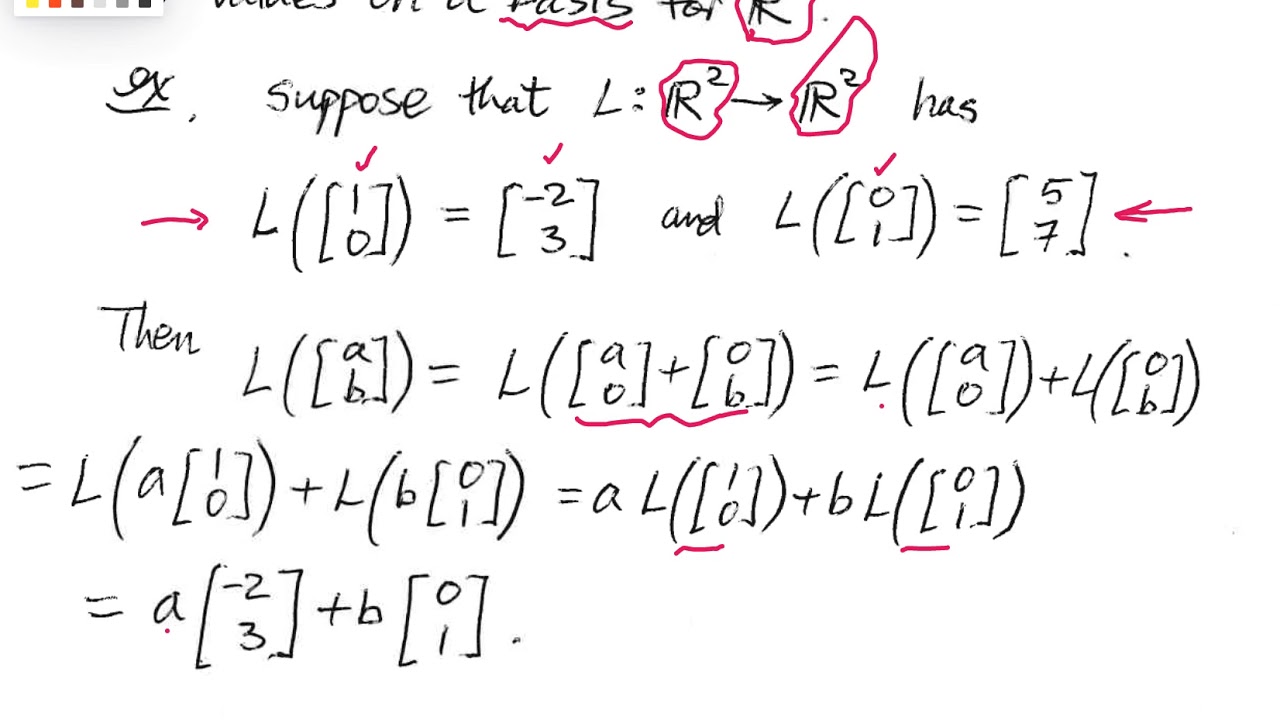 values on a basis for ℝ.
ex. Suppose that L: ℝ² → ℝ² has
→ L([1 0]) = [-2 3] and L([0 1]) = [5 7]. ←
Then L([a b]) = L([a 0]+[0 b]) = L([a 0])+L([0 b])
= L(a[1 0]) + L(b[0 1]) = a L([1 0])+b L([0 1])
= a[-2 3]+b[0 1].